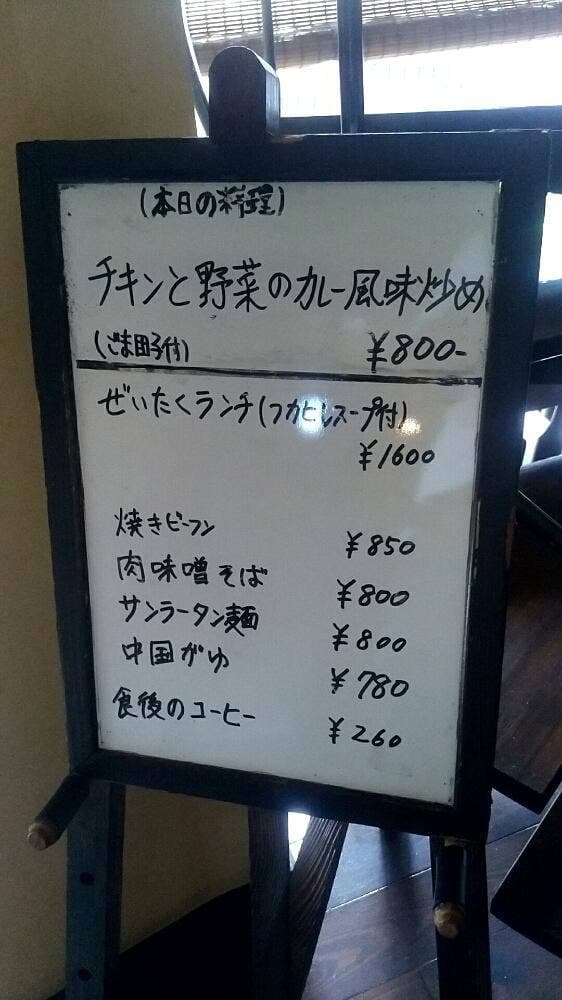 (本日の料理)
チキンと野菜のカレー風味炒め
(ごま団子付) ¥800-
ぜいたくランチ(フカヒレスープ付)
¥1600
焼きビーフン ¥850
肉味噌そば ¥800
サンラータン麺 ¥800
中国がゆ ¥780
食後のコーヒー ¥260